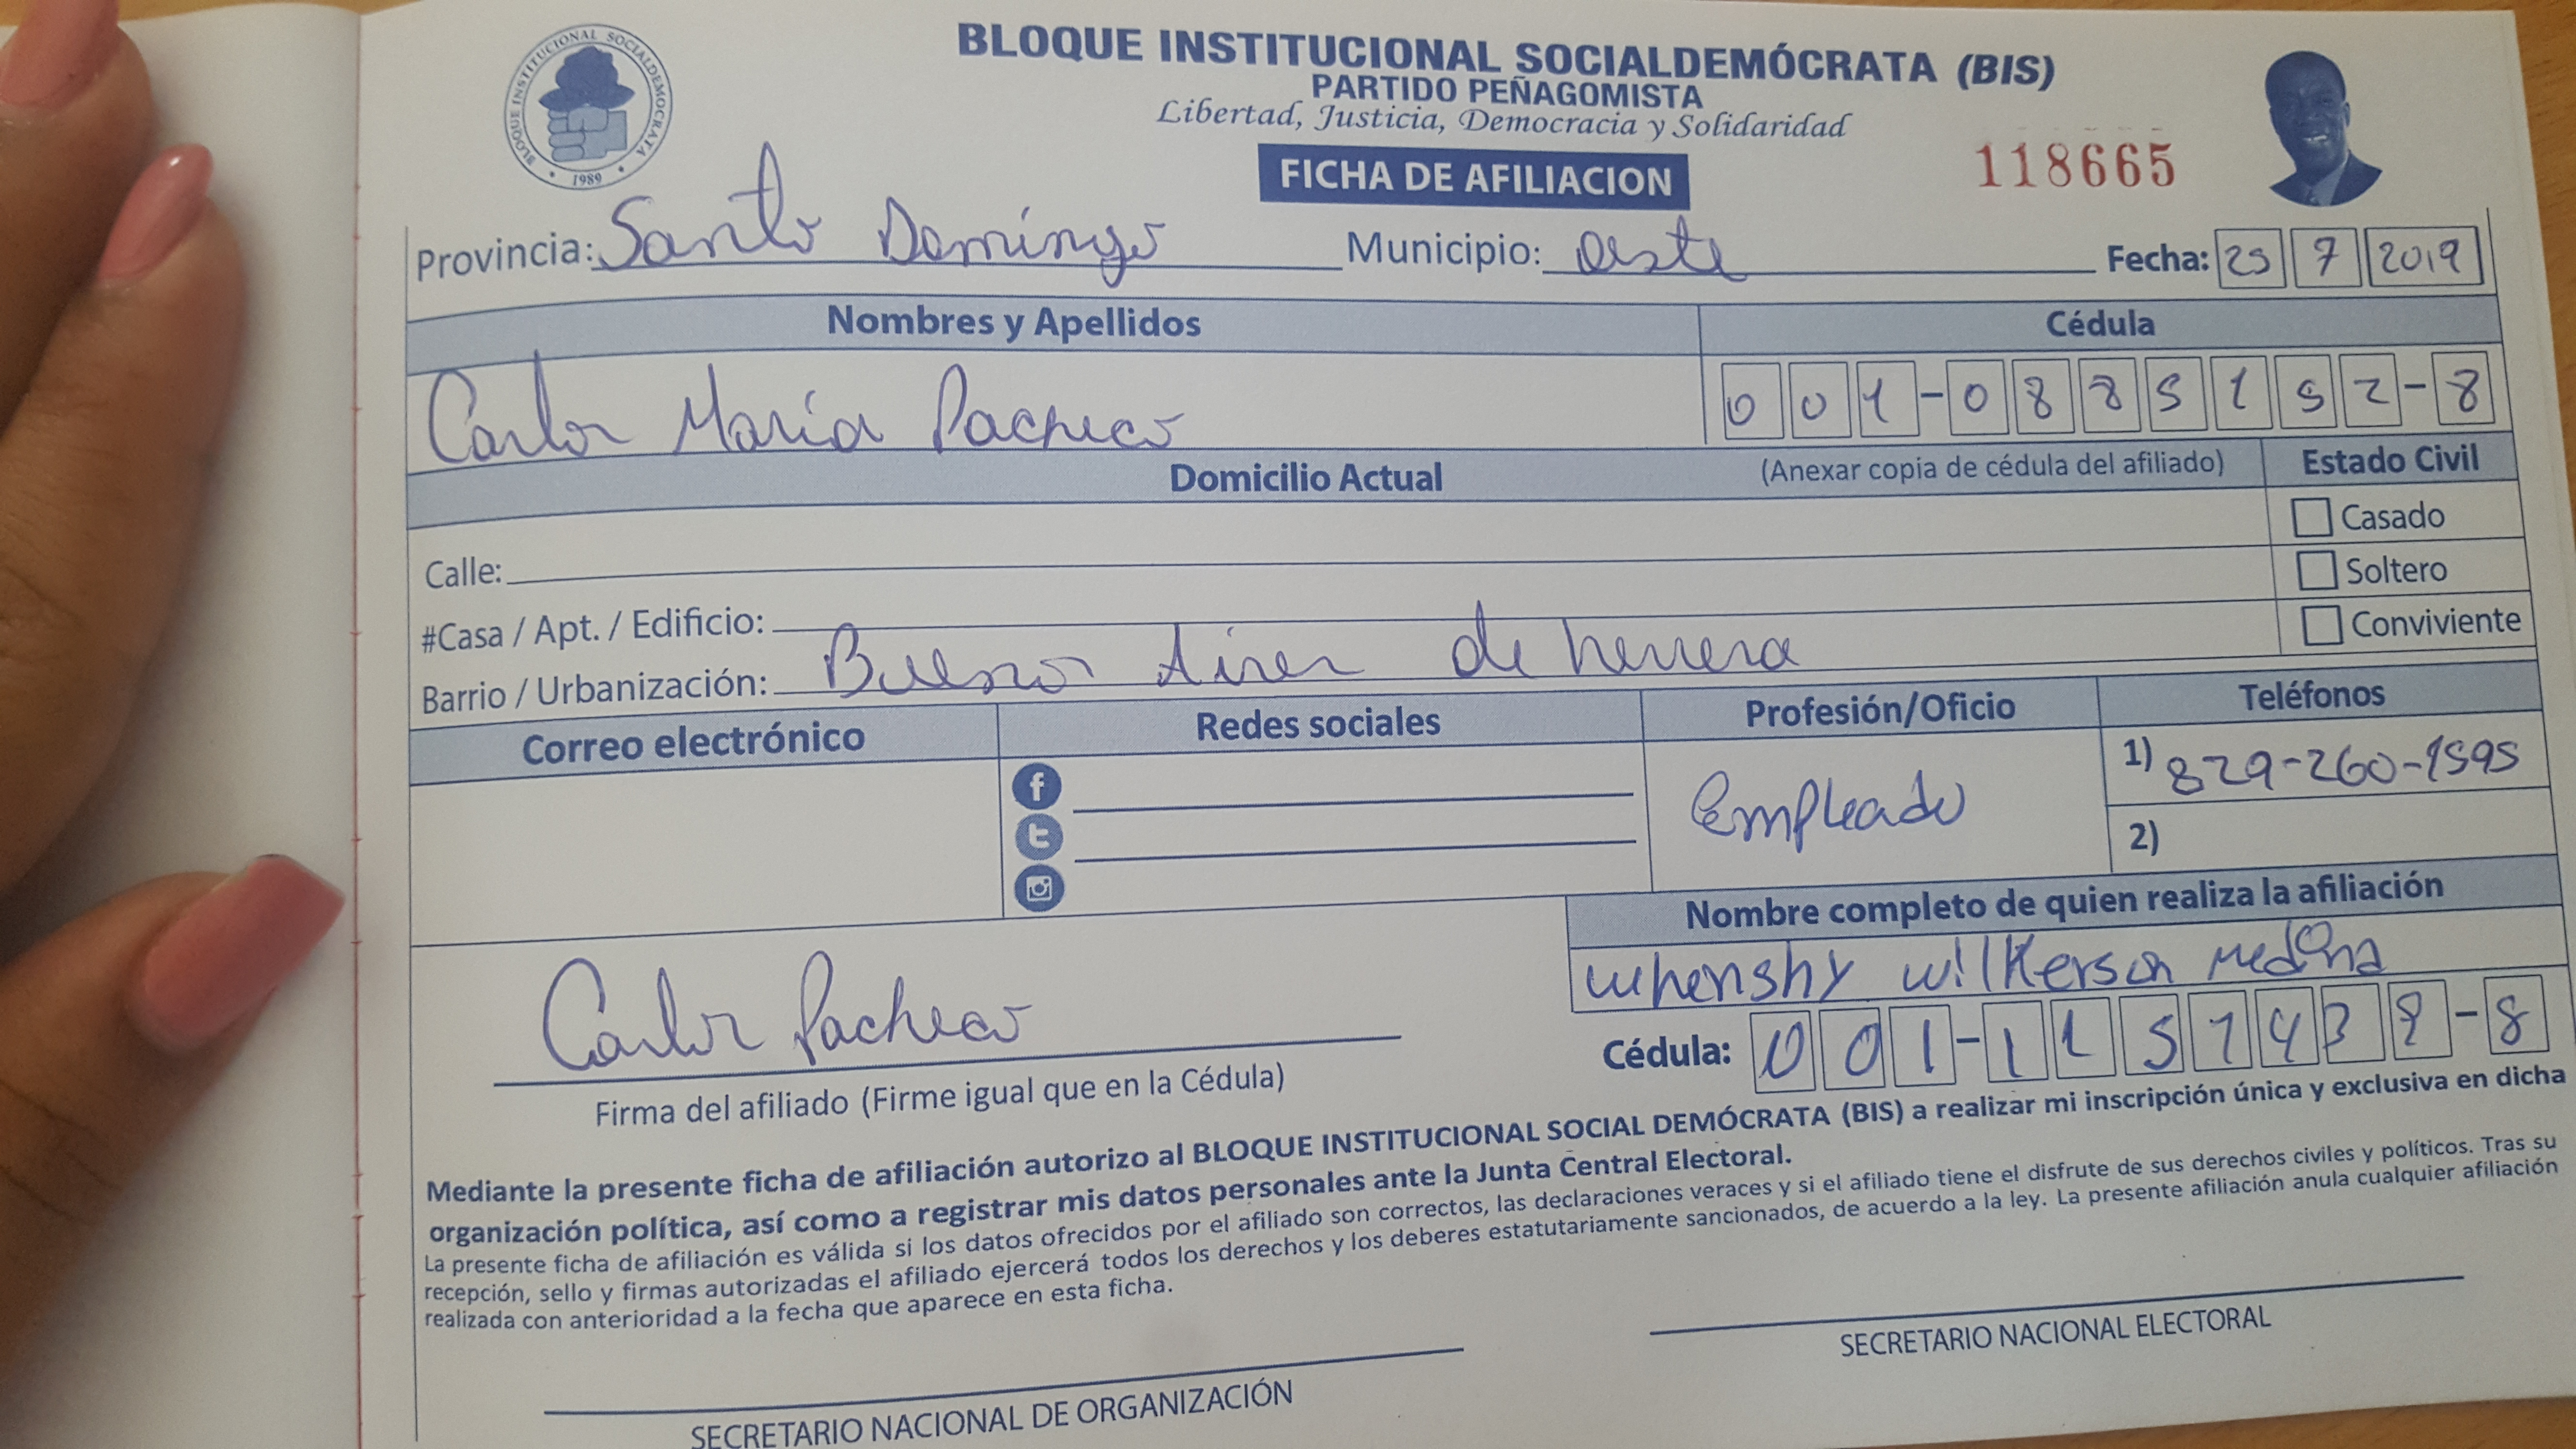 BLOQUE INSTITUCIONAL SOCIALDEMÓCRATA (BIS)
PARTIDO PEÑAGOMISTA
Libertad, Justicia, Democracia y Solidaridad
BLOQUE INSTITUCIONAL SOCIALDEMOCRATA
1989
FICHA DE AFILIACION
118665
Provincia: Santo Domingo Municipio: Oeste Fecha: 25 7 2019
Nombres y Apellidos Cédula
Carlos María Pacheco 001-0885152-8
Domicilio Actual (Anexar copia de cédula del afiliado) Estado Civil
Casado
Calle:
Soltero
#Casa / Apt. / Edificio:
Conviviente
Barrio / Urbanización: Buenos Aires de herrera
Correo electrónico Redes sociales Profesión/Oficio Teléfonos
Empleado 1) 829-260-1595
2)
Nombre completo de quien realiza la afiliación
whenshy wilkerson medina
Carlos Pacheco
Cédula: 001-1157439-8
Firma del afiliado (Firme igual que en la Cédula)
Mediante la presente ficha de afiliación autorizo al BLOQUE INSTITUCIONAL SOCIAL DEMÓCRATA (BIS) a realizar mi inscripción única y exclusiva en dicha
organización política, así como a registrar mis datos personales ante la Junta Central Electoral.
La presente ficha de afiliación es válida si los datos ofrecidos por el afiliado son correctos, las declaraciones veraces y si el afiliado tiene el disfrute de sus derechos civiles y políticos. Tras su
recepción, sello y firmas autorizadas el afiliado ejercerá todos los derechos y los deberes estatutariamente sancionados, de acuerdo a la ley. La presente afiliación anula cualquier afiliación
realizada con anterioridad a la fecha que aparece en esta ficha.
SECRETARIO NACIONAL DE ORGANIZACIÓN SECRETARIO NACIONAL ELECTORAL